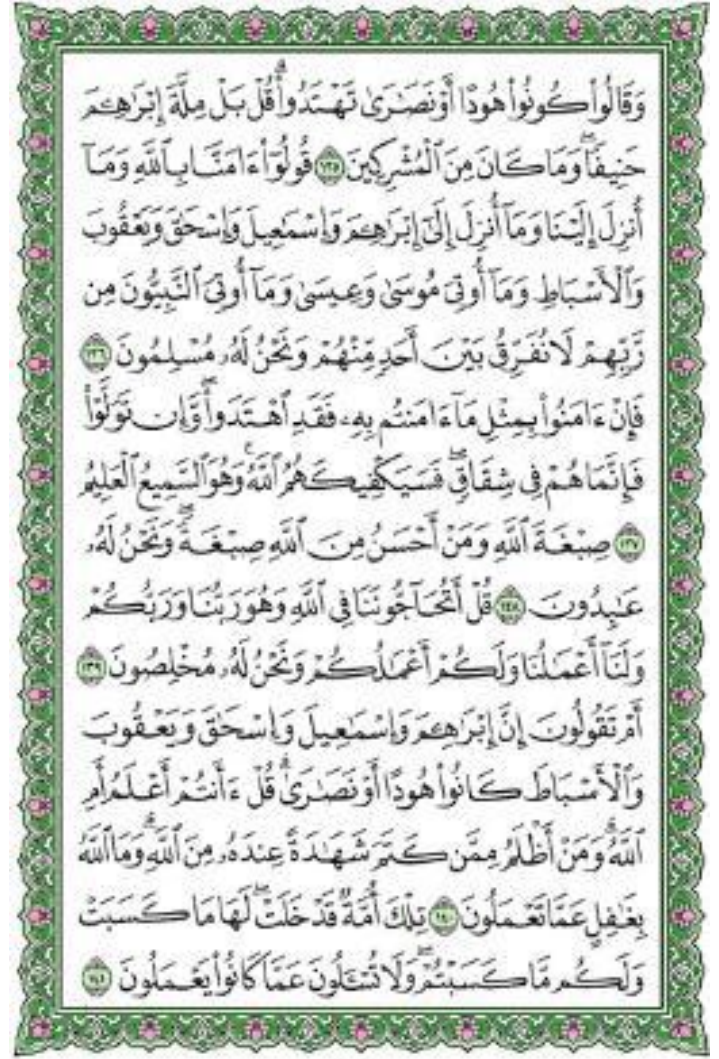 وَقَالُوا۟ كُونُوا۟ هُودًا أَوْ نَصَـٰرَىٰ تَهْتَدُوا۟ ۗ قُلْ بَلْ مِلَّةَ إِبْرَٰهِـۧمَ
حَنِيفًا ۖ وَمَا كَانَ مِنَ ٱلْمُشْرِكِينَ ١٣٥ قُولُوٓا۟ ءَامَنَّا بِٱللَّهِ وَمَآ
أُنزِلَ إِلَيْنَا وَمَآ أُنزِلَ إِلَىٰٓ إِبْرَٰهِـۧمَ وَإِسْمَـٰعِيلَ وَإِسْحَـٰقَ وَيَعْقُوبَ
وَٱلْأَسْبَاطِ وَمَآ أُوتِىَ مُوسَىٰ وَعِيسَىٰ وَمَآ أُوتِىَ ٱلنَّبِيُّونَ مِن
رَّبِّهِمْ لَا نُفَرِّقُ بَيْنَ أَحَدٍ مِّنْهُمْ وَنَحْنُ لَهُۥ مُسْلِمُونَ ١٣٦
فَإِنْ ءَامَنُوا۟ بِمِثْلِ مَآ ءَامَنتُم بِهِۦ فَقَدِ ٱهْتَدَوا۟ ۖ وَّإِن تَوَلَّوْا۟
فَإِنَّمَا هُمْ فِى شِقَاقٍ ۖ فَسَيَكْفِيكَهُمُ ٱللَّهُ ۚ وَهُوَ ٱلسَّمِيعُ ٱلْعَلِيمُ
١٣٧ صِبْغَةَ ٱللَّهِ ۖ وَمَنْ أَحْسَنُ مِنَ ٱللَّهِ صِبْغَةً ۖ وَنَحْنُ لَهُۥ
عَـٰبِدُونَ ١٣٨ قُلْ أَتُحَآجُّونَنَا فِى ٱللَّهِ وَهُوَ رَبُّنَا وَرَبُّكُمْ
وَلَنَآ أَعْمَـٰلُنَا وَلَكُمْ أَعْمَـٰلُكُمْ وَنَحْنُ لَهُۥ مُخْلِصُونَ ١٣٩
أَمْ تَقُولُونَ إِنَّ إِبْرَٰهِـۧمَ وَإِسْمَـٰعِيلَ وَإِسْحَـٰقَ وَيَعْقُوبَ
وَٱلْأَسْبَاطَ كَانُوا۟ هُودًا أَوْ نَصَـٰرَىٰ ۗ قُلْ ءَأَنتُمْ أَعْلَمُ أَمِ
ٱللَّهُ ۗ وَمَنْ أَظْلَمُ مِمَّن كَتَمَ شَهَـٰدَةً عِندَهُۥ مِنَ ٱللَّهِ ۗ وَمَا ٱللَّهُ
بِغَـٰفِلٍ عَمَّا تَعْمَلُونَ ١٤٠ تِلْكَ أُمَّةٌ قَدْ خَلَتْ ۖ لَهَا مَا كَسَبَتْ
وَلَكُم مَّا كَسَبْتُمْ ۖ وَلَا تُسْـَٔلُونَ عَمَّا كَانُوا۟ يَعْمَلُونَ ١٤١